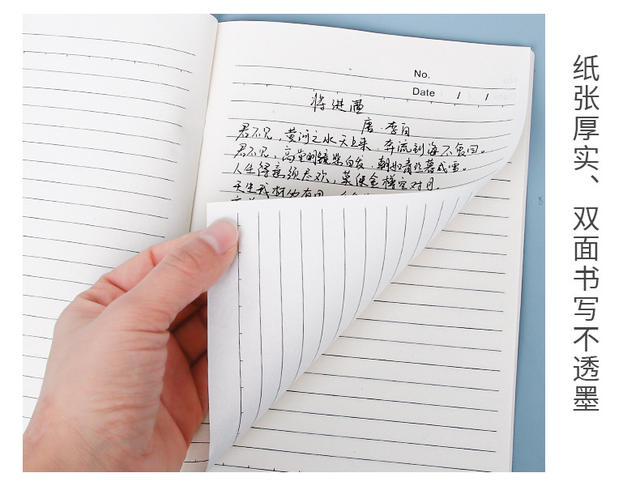 No.
Date / /
将进酒
唐·李白
君不见,黄河之水天上来,奔流到海不复回。
君不见,高堂明镜悲白发,朝如青丝暮成雪。
人生得意须尽欢,莫使金樽空对月。
天生我材必有用,
纸张厚实、双面书写不透墨